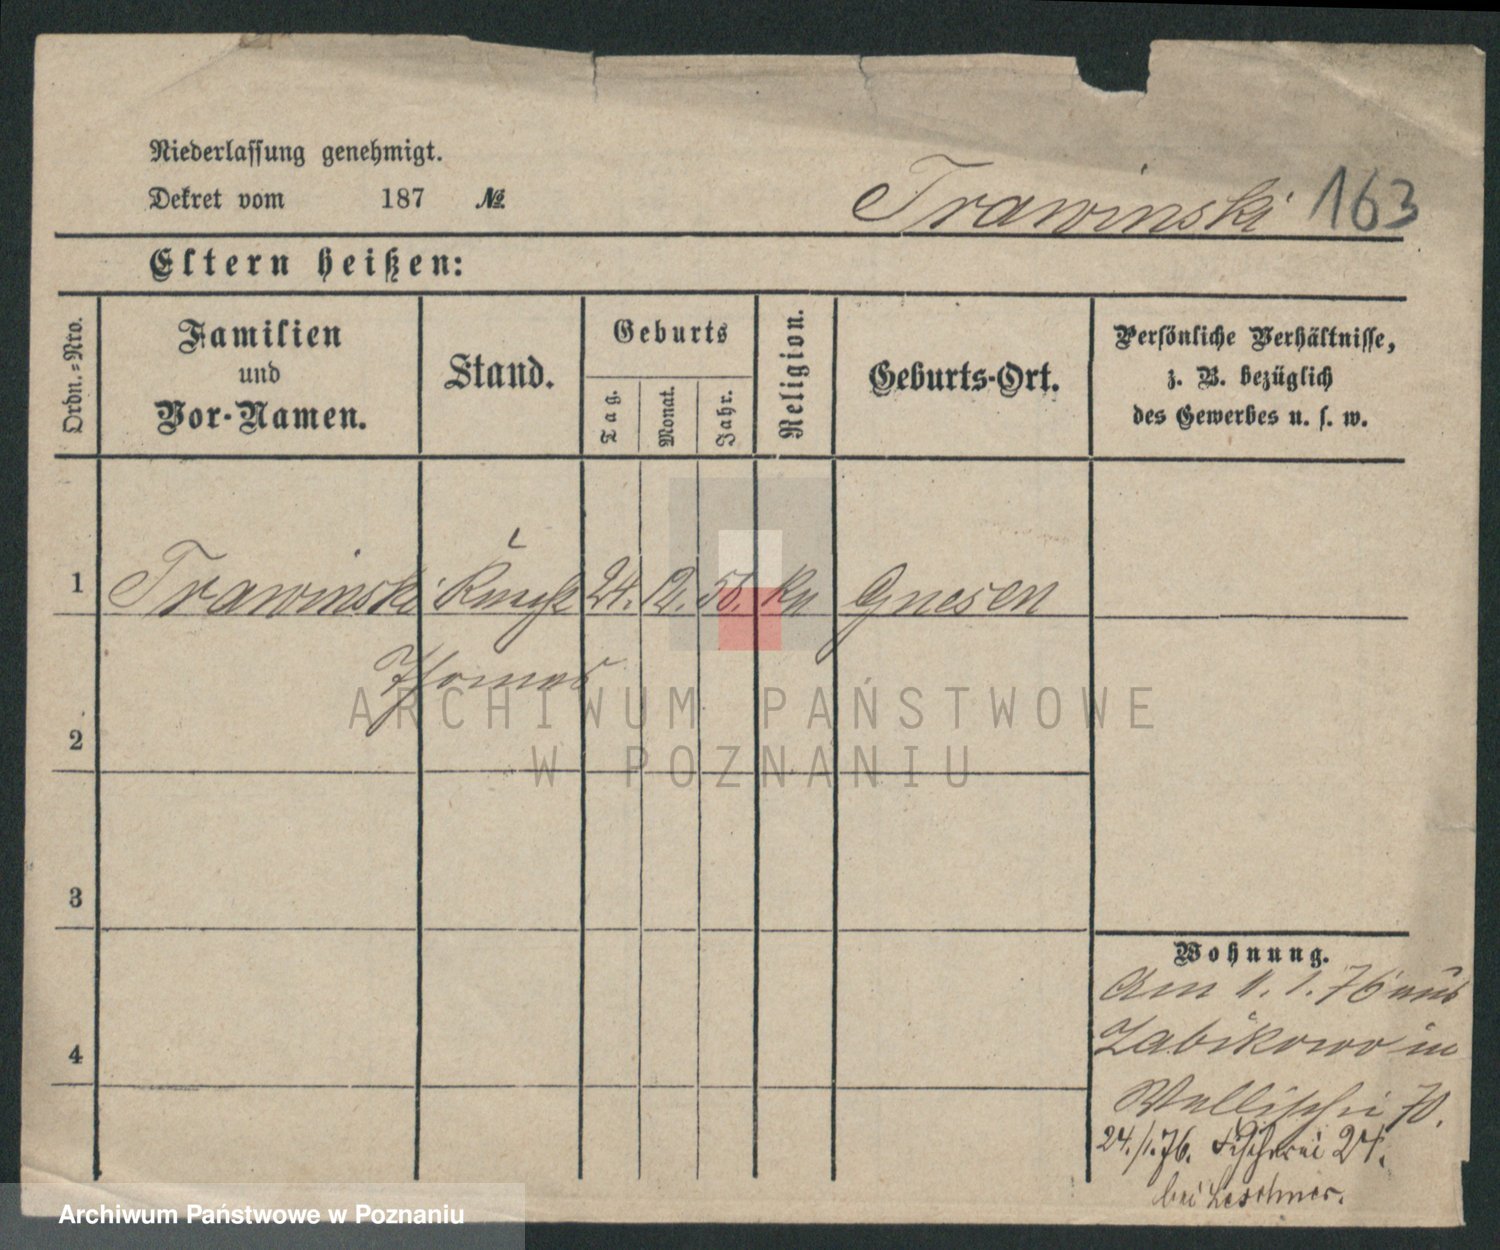 Niederlassung genehmigt.
Dekret vom 187 №
Trawinski 163
Eltern heißen:
Ordn.-Nro.
Familien
und
Vor-Namen.
Stand.
Geburts
Tag.
Monat.
Jahr.
Religion.
Geburts-Ort.
Persönliche Verhältnisse,
z. B. bezüglich
des Gewerbes u. s. w.
1 Trawinski 24. 12. Gnesen
Thomas
2
3
4
Wohnung.
Am 1. 76 aus
Zabikowo in
Wallischei 70.
24./1.76. Fischerei 24.
bei Leschner.
ARCHIWUM PAŃSTWOWE
W POZNANIU
Archiwum Państwowe w Poznaniu